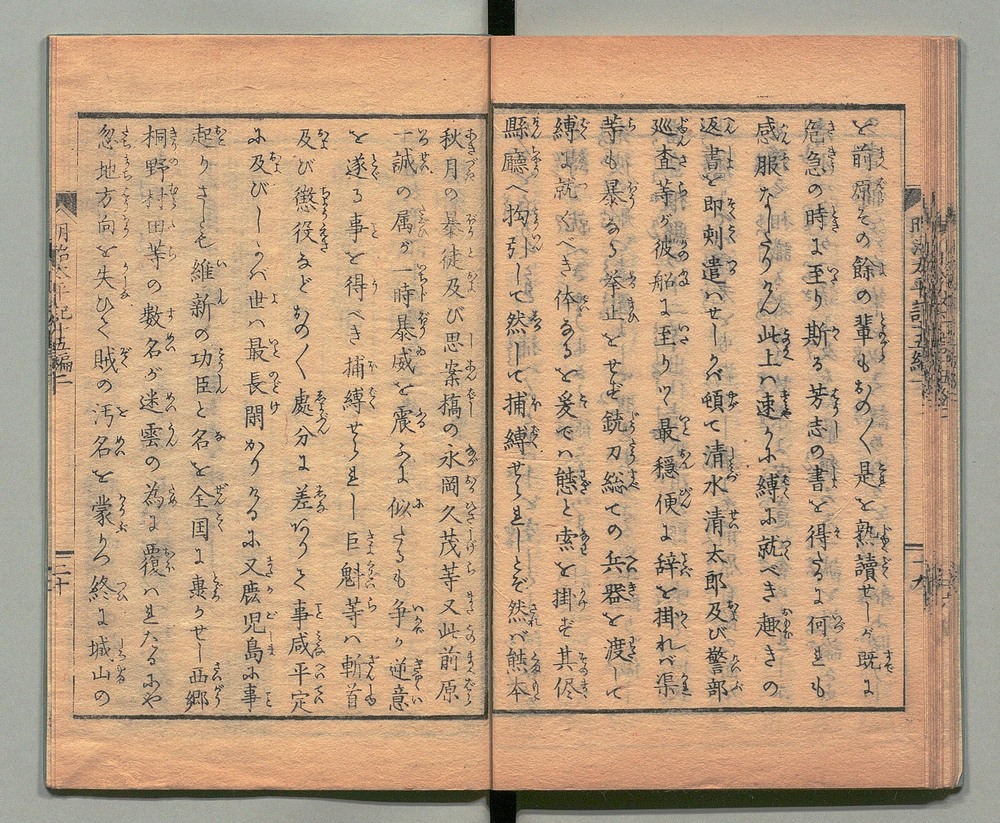 と前原その餘の輩もおの〱是を熟讀せしが既に
危急の時に至り斯る芳志の書を得たるに何れも
感服なしたりけん此上ハ速かに縛に就べき趣きの
返書を即刻遣ハせしかバ頓て清水清太郎及び警部
巡査等が彼船に至りツヽ最穏便に辞を掛れバ渠
等も暴なる挙止をせず銃刀総ての兵器を渡して
縛に就くべき体なるを爰でハ態と索を掛ず其侭
縣廳へ拘引して然して捕縛せられしとぞ然バ熊本
秋月の暴徒及び思案橋の永岡久茂等又此前原
一誠の属が一時暴威を震ふに似たるも争か逆意
を遂る事を得べき捕縛せられし巨魁等ハ斬首
及び懲役などおの〱處分に差ありて事咸平定
に及びしかバ世ハ最長閑かりけるに又鹿児島に事
起りさしも維新の功臣と名を全国に轟かせし西郷
桐野村田等の数名が迷雲の為に覆ハれたるにや
忽地方向を失ひて賊の汚名を蒙りつ終に城山の
明治太平記十五編二
二十
十九